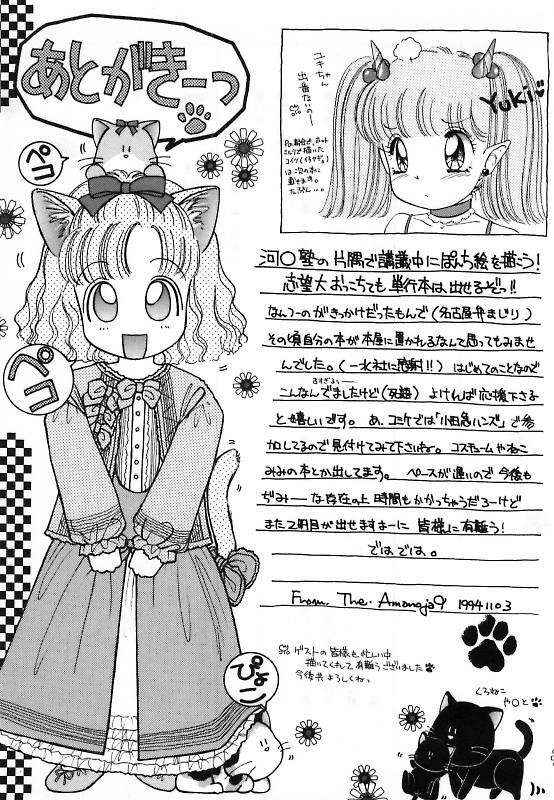 あとがきーっ
ペコ
ペコ
ユキちゃん
出番ないのー
Yuki
河○塾の片隅で講義中にぽんち絵を描こう!
志望大おっこちても、単行本は、出せるぞっ!!
なんつーのがきっかけだったもんで(名古屋弁まじり)
その頃自分の本が本屋に置かれるなんて思ってもみませ
んでした。(一水社に感謝!!) はじめてのことなので
こんなんでましたけど(死語) よければ応援下さる
と嬉しいです。あ、コミケでは「小田急ハンズ」で参
加してるので見付けてみて下さいね。コスチュームやねこ
みみの本とか出してます。ペースが遅いので今後も
ぢみーな存在の上時間もかかっちゃうだろーけど
また2冊目が出せますよーに 皆様に有難う!
ではでは。
From. The. Amanoja9 1994 11 03
ゲストの皆様も忙しい中
描いてくれて有難うございました
今後共よろしくねっ
ぴょこ
くろねこ
や○と